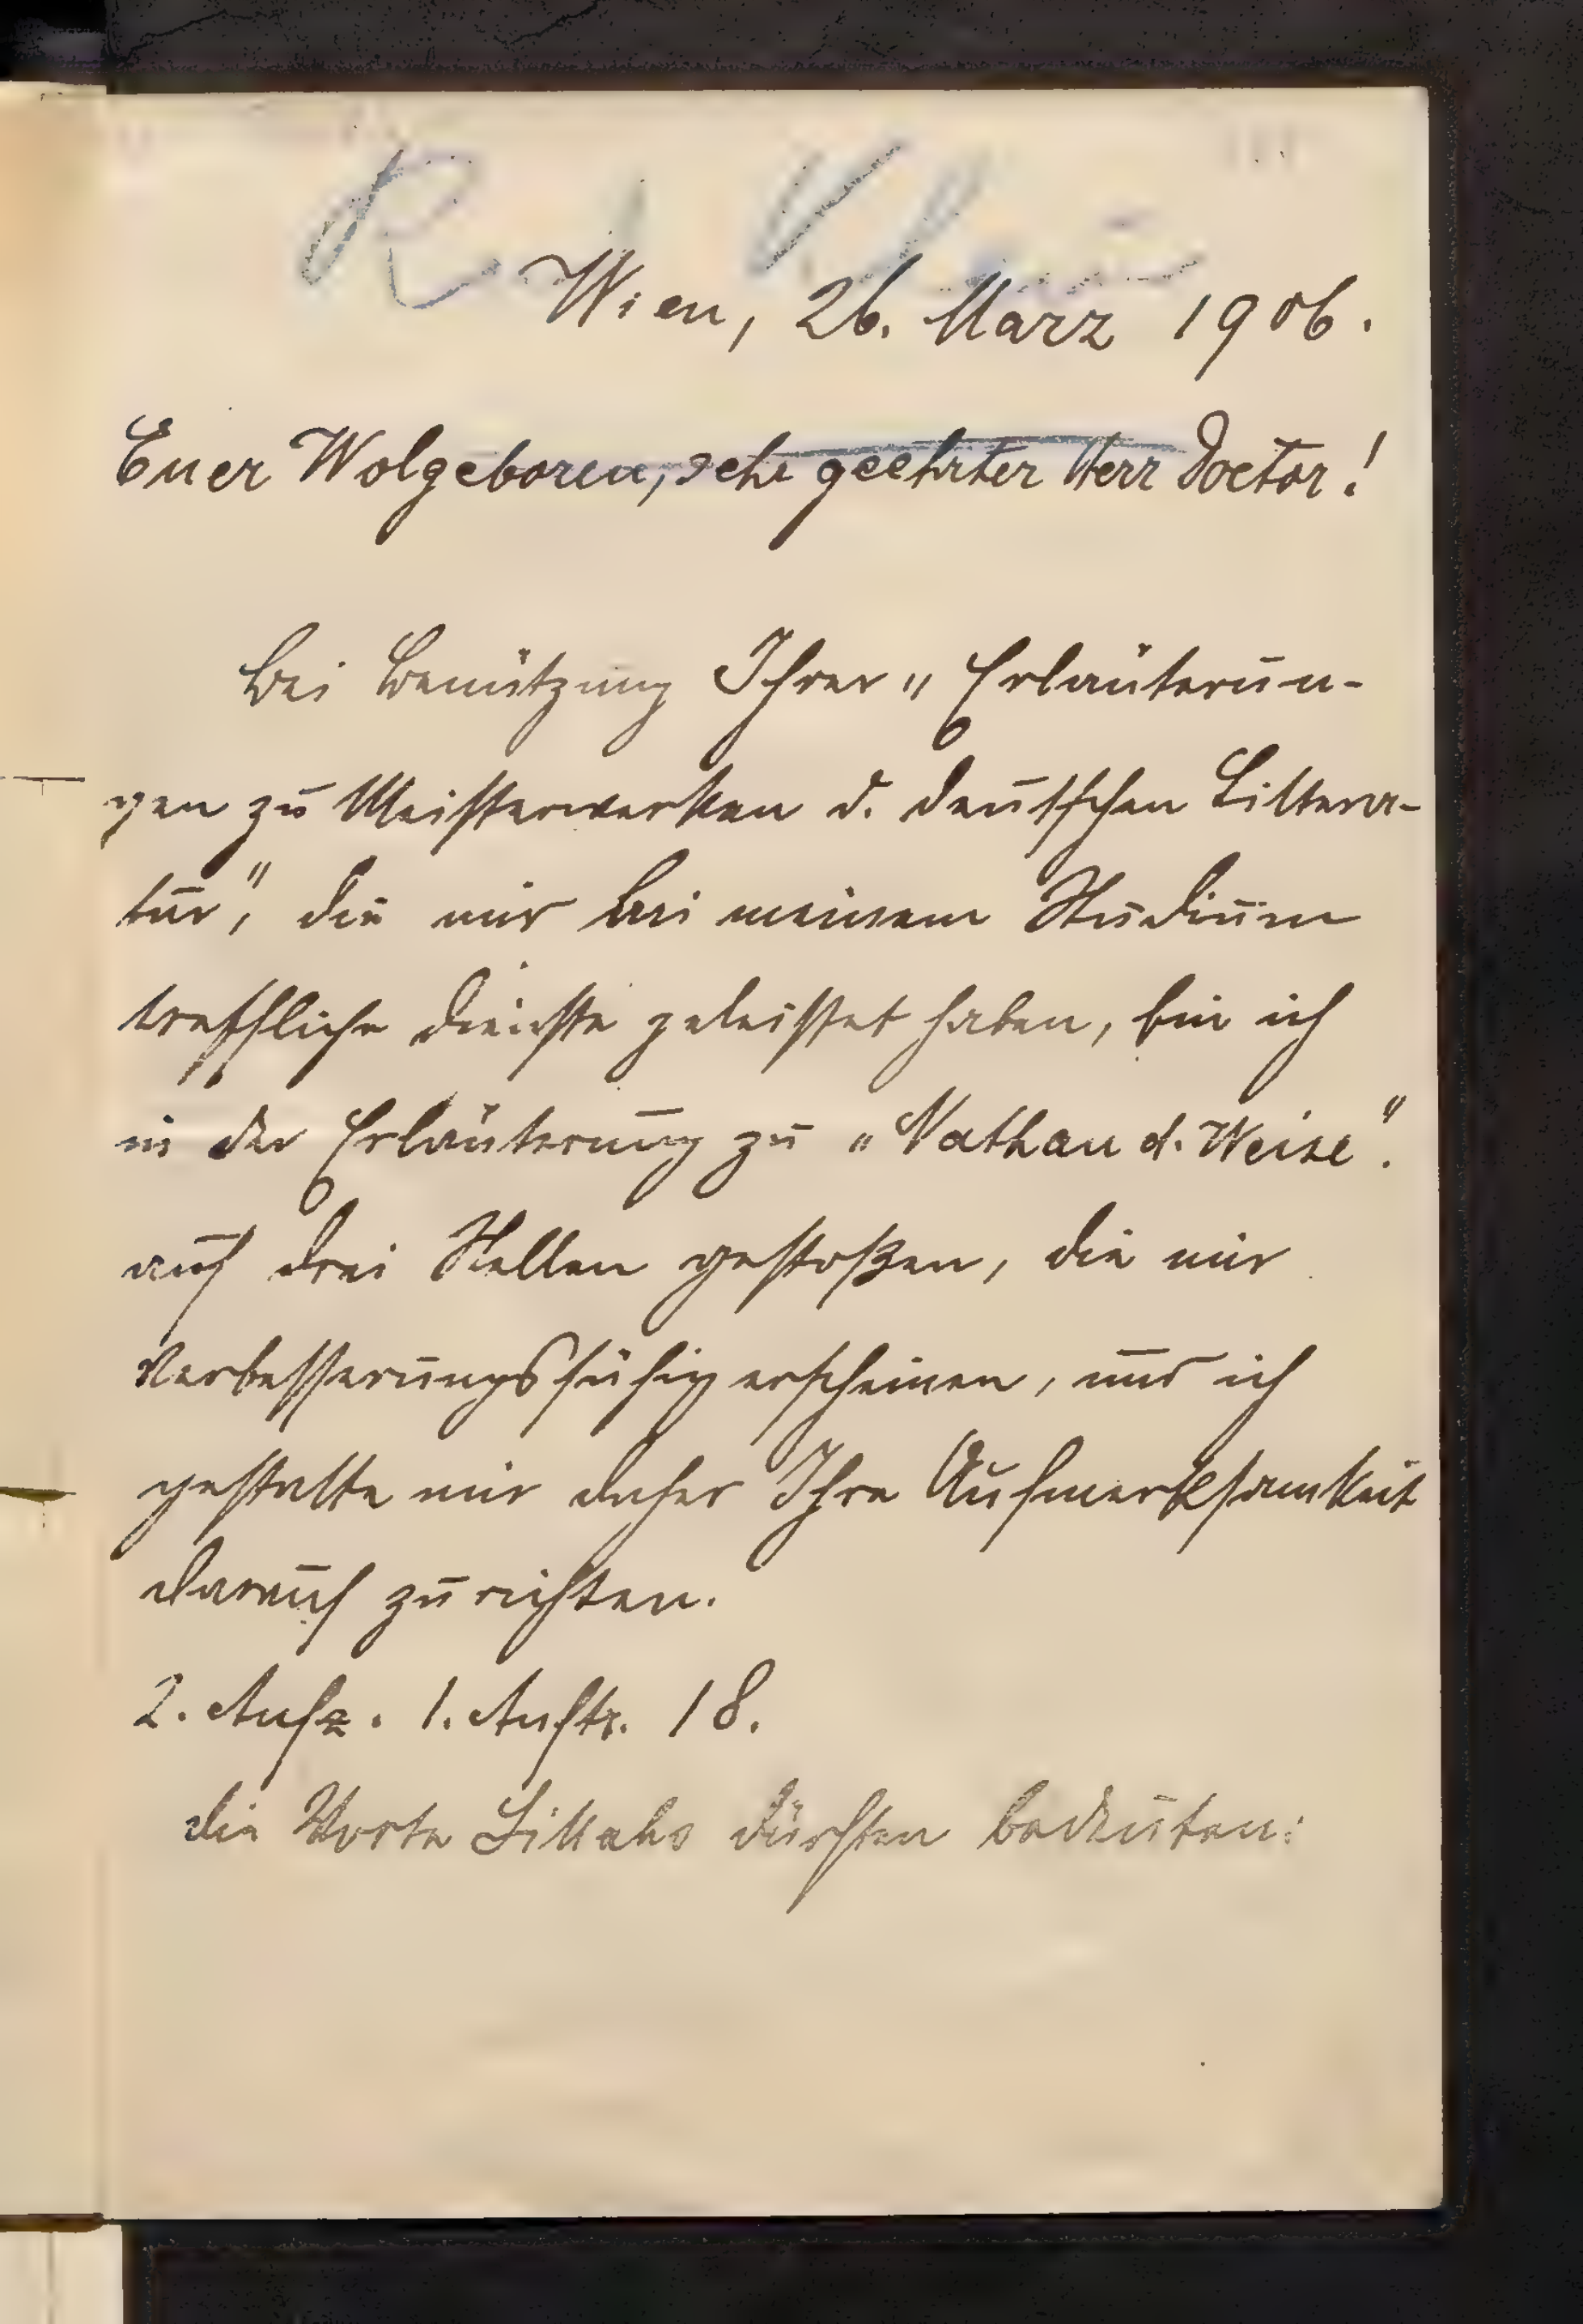 Wien, 26. März 1906.
Euer Wolgeboren, sehr geehrter Herr Doctor!
Bei Benützung Ihrer „Erläuterun-
gen zu Meisterwerken d. deutschen Littera-
tur", die mir bei meinem Studium
treffliche Dienste geleistet haben, bin ich
in der Erläuterung zu „Nathan d. Weise".
auf drei Stellen gestoßen, die mir
verbesserungsfähig erscheinen, und ich
gestatte mir daher Ihre Aufmerksamkeit
darauf zu richten.
2. Aufz. 1. Auftr. 18.
die Worte Sittahs dürften bedeuten: